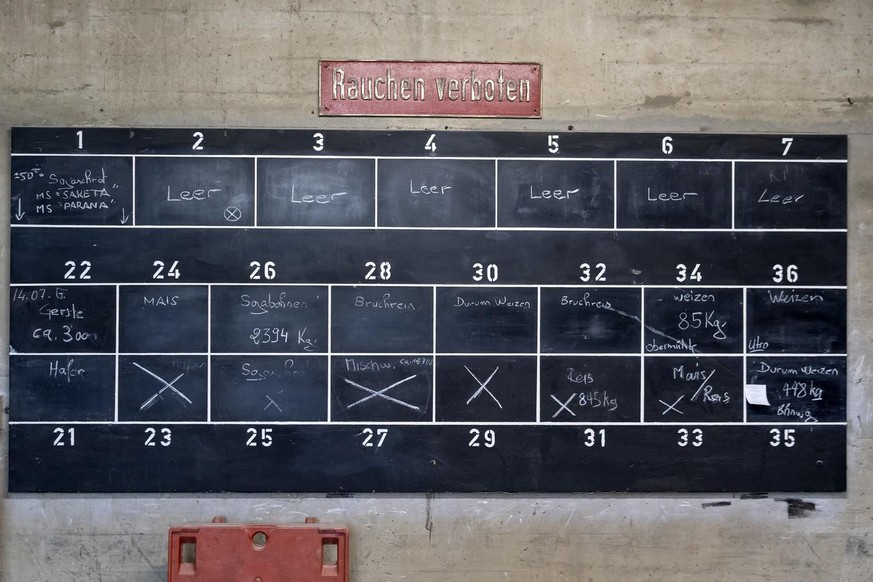 Rauchen verboten
1 2 3 4 5 6 7
Sojaschrot
MS "SAKETA"
MS "PARANA"
Leer Leer Leer Leer Leer Leer
22 24 26 28 30 32 34 36
14.07. G.
Gerste
ca. 3'000
MAIS
Sojabohnen
2394 Kg.
Bruchreis
Durum Weizen
Bruchreis
weizen
85Kg.
obermühle
Weizen
Hafer
Mischw.
Reis
845kg
Mais/
Reis
Durum Weizen
448kg
21 23 25 27 29 31 33 35